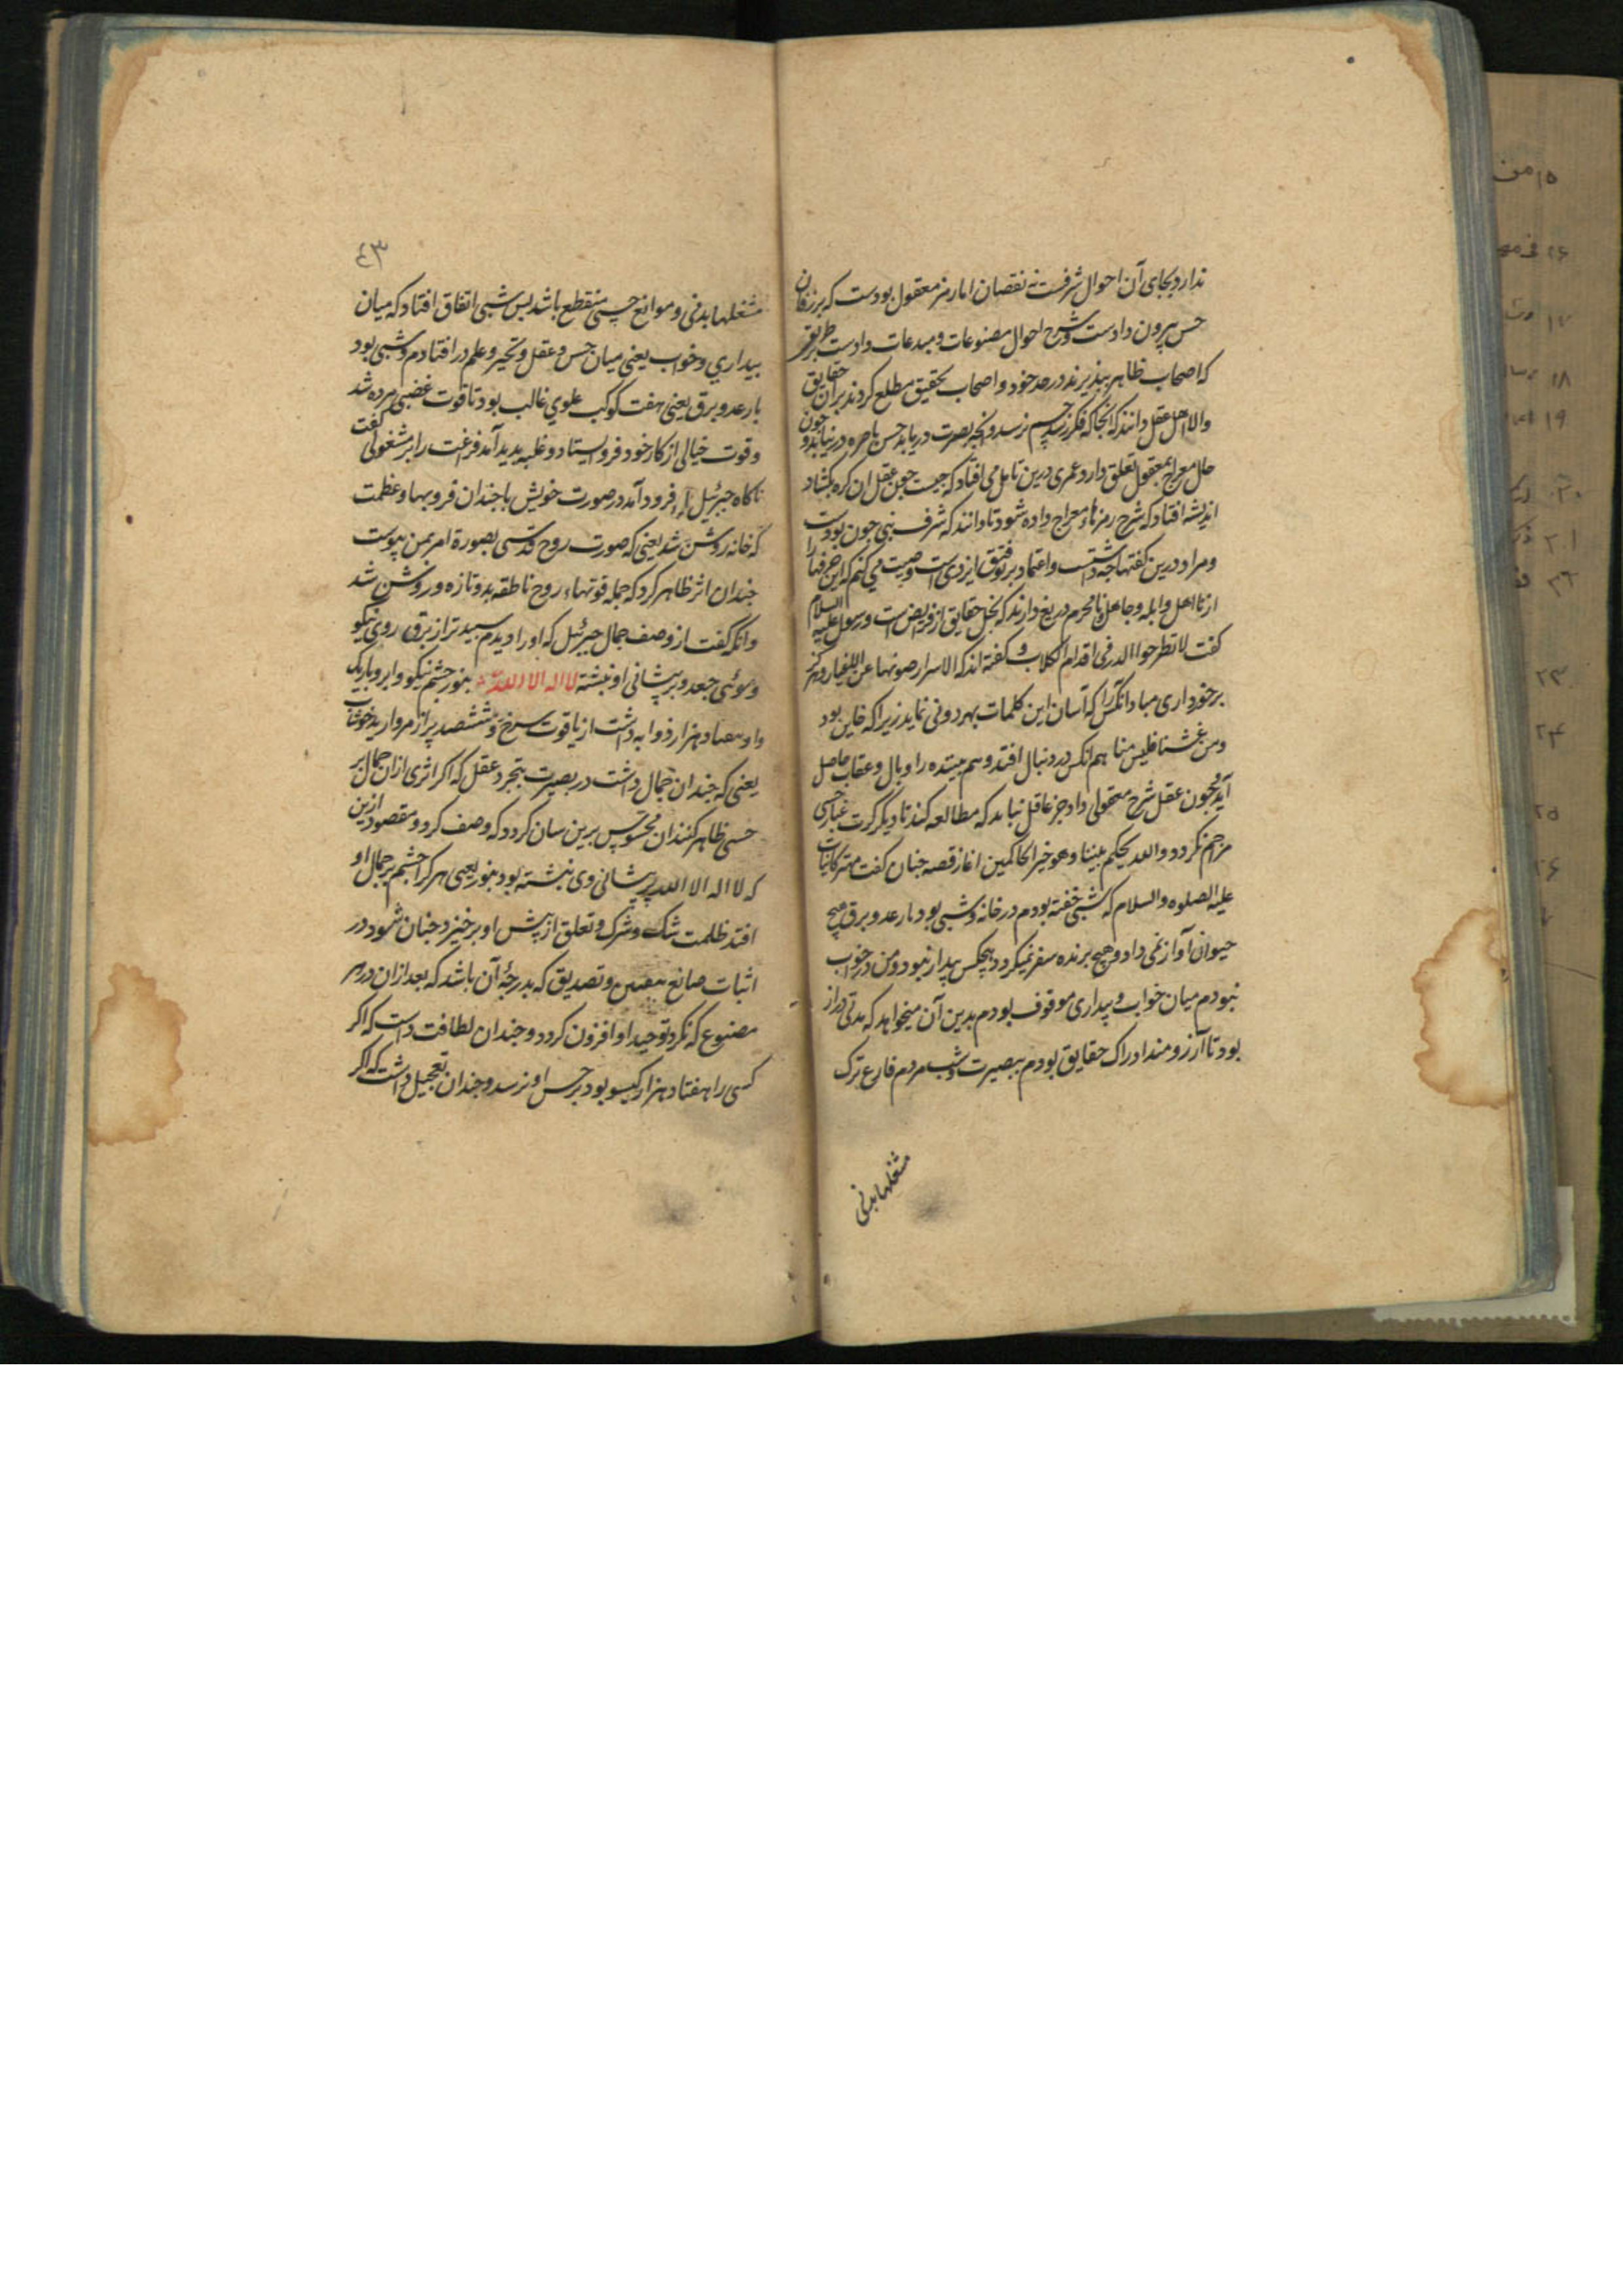 ندارد و بجای آن احوال شرفست نه نقصان اما رمز معقول بودست که بر زفان
حس بیرون دادست و شرح احوال مصنوعات و مبدعات دادست بر طریقی
که اصحاب ظاهر بپذیرند در حد خود و اصحاب تحقیق مطلع کردند بران حقایق
والا اهل عقل دانند که آنجا که فکر رسد جسم نرسد و آنچه بصیرت دریابد حس باصره درنیابد و چون
حال معراج بمعقول تعلق دارد و عمری درین تامل می افتاد که چیست چون عقل ان کره بکشاد
اندیشه افتاد که شرح رمزهاء معراج داده شود تا دانند که شرف نبی چون بودست
و مراد درین کفتها چه داشتست و اعتماد بر توفیق ایزدی است وصیت می کنم که این حرفها را
از نا اهل و ابله و جاهل و نامحرم دریغ دارند که بخل حقایق از فرایض است و رسول علیه السلام
کفت لا تطرحوا الدر فی اقدام الکلاب و کفته اند که الاسرار صونها عن الاغیار و هرکز
برخورداری مبادا انکس را که آسان این کلمات بهر دونی نماید زیرا که خاین بود
ومن غشنا فلیس منا هم انکس در دنبال افتد و هم مبتده را وبال و عقاب حاصل
آید و چون عقل شرح معقولی داد جز عاقل نباید که مطالعه کند تا دیگر کرت غبار حسی
مزاحم نکردد والله یحکم بیننا وهو خیر الحاکمین اغاز قصه چنان کفت مهتر کاینات
علیه الصلوه والسلام که شبی خفته بودم در خانه و شبی بود با رعد و برق هیچ
حیوان آواز نمی داد و هیچ پرنده سفر نمیکرد و هیچکس بیدار نبود و من در خواب
نبودم میان خواب و بیداری موقوف بودم بدین آن میخواهد که مدتی دراز
بود تا آرزومند ادراک حقایق بودم ببصیرت و شب مردم فارغ ترک
مشغلها بدنی
٤٣
مشغلهاء بدنی و موانع حسی منقطع باشد پس شبی اتفاق افتاد که میان
بیداری و خواب یعنی میان حس و عقل و تحیر و علم در افتادم و شبی بود
با رعد و برق یعنی هفت کوکب علوی غالب بود تا قوت غضبی مرده شد
و قوت خیالی از کار خود فرو ایستاد و غلبه پدید آمد فراغت را بر مشغولی کفت
ناکاه جبرئیل فرود آمد در صورت خویش با چندان فر و بها و عظمت
که خانه روشن شد یعنی که صورت روح قدسی بصورة امر بمن پیوست
چندان اثر ظاهر کرد که جمله قوتهاء روح ناطقه بدو تازه و روشن شد
وانکه کفت از وصف جمال جبرئیل که او را دیدم سپیدتر از برق روی نیکو
و موئی جعد و بر پیشانی او نبشته لا اله الا الله بنور چشم نیکو و ابرو باریک
و او هفتاد هزار ذوابه داشت از یاقوت سرخ و ششصد پر از مروارید خوشاب
یعنی که چندان جمال داشت در بصیرت بتجرد عقل که اکر اثری ازان جمال بر
حسی ظاهر کنند ان محسوس برین سان کردد که وصف کرد و مقصود ازین
که لا اله الا الله بر پیشانی وی نبشته بود بنور یعنی هر کرا چشم بر جمال او
افتد ظلمت شک و شرک و تعلق از پیش او برخیزد و چنان شود در
اثبات صانع بیقین و تصدیق که بدرجۀ آن باشد که بعد ازان در هر
مصنوع که نکرد توحید او افزون کردد و چندان لطافت داشت که اکر
کسی را هفتاد هزار کیسو بود بر حسن او نرسد و چندان تعجیل داشت که اکر